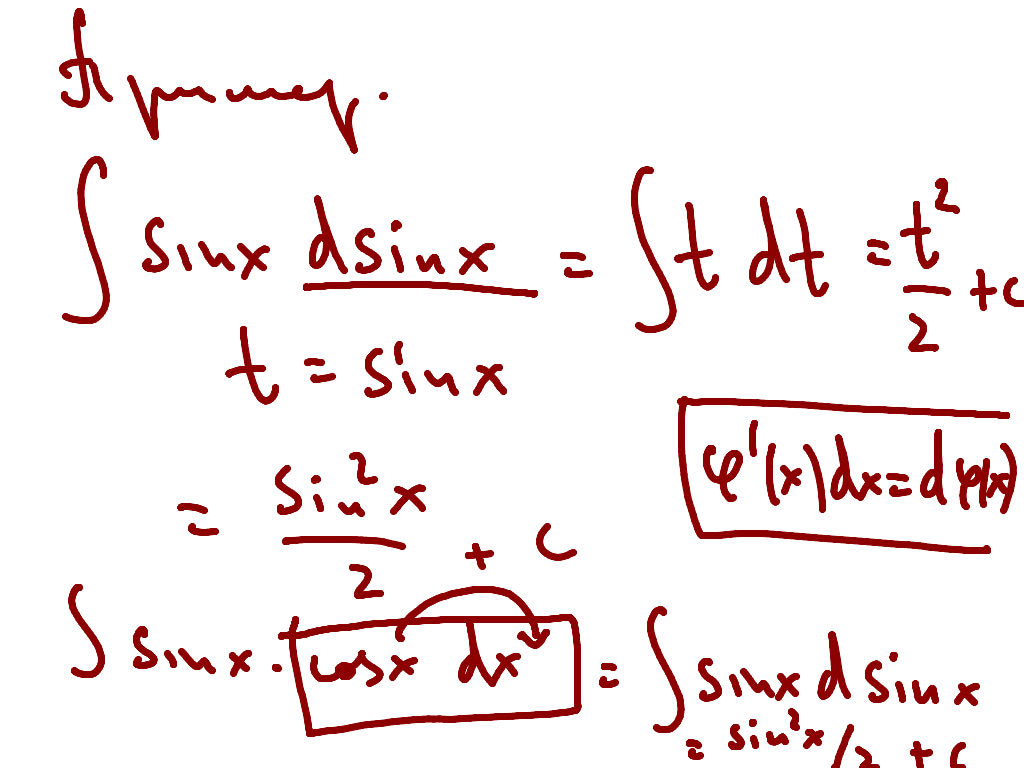 Пример.
∫ sinx dsinx = ∫ t dt = t²/2 + C
t = sinx
φ'(x)dx = dφ(x)
= sin²x/2 + C
∫ sinx · cosx dx = ∫ sinx d sinx
= sin²x/2 + C